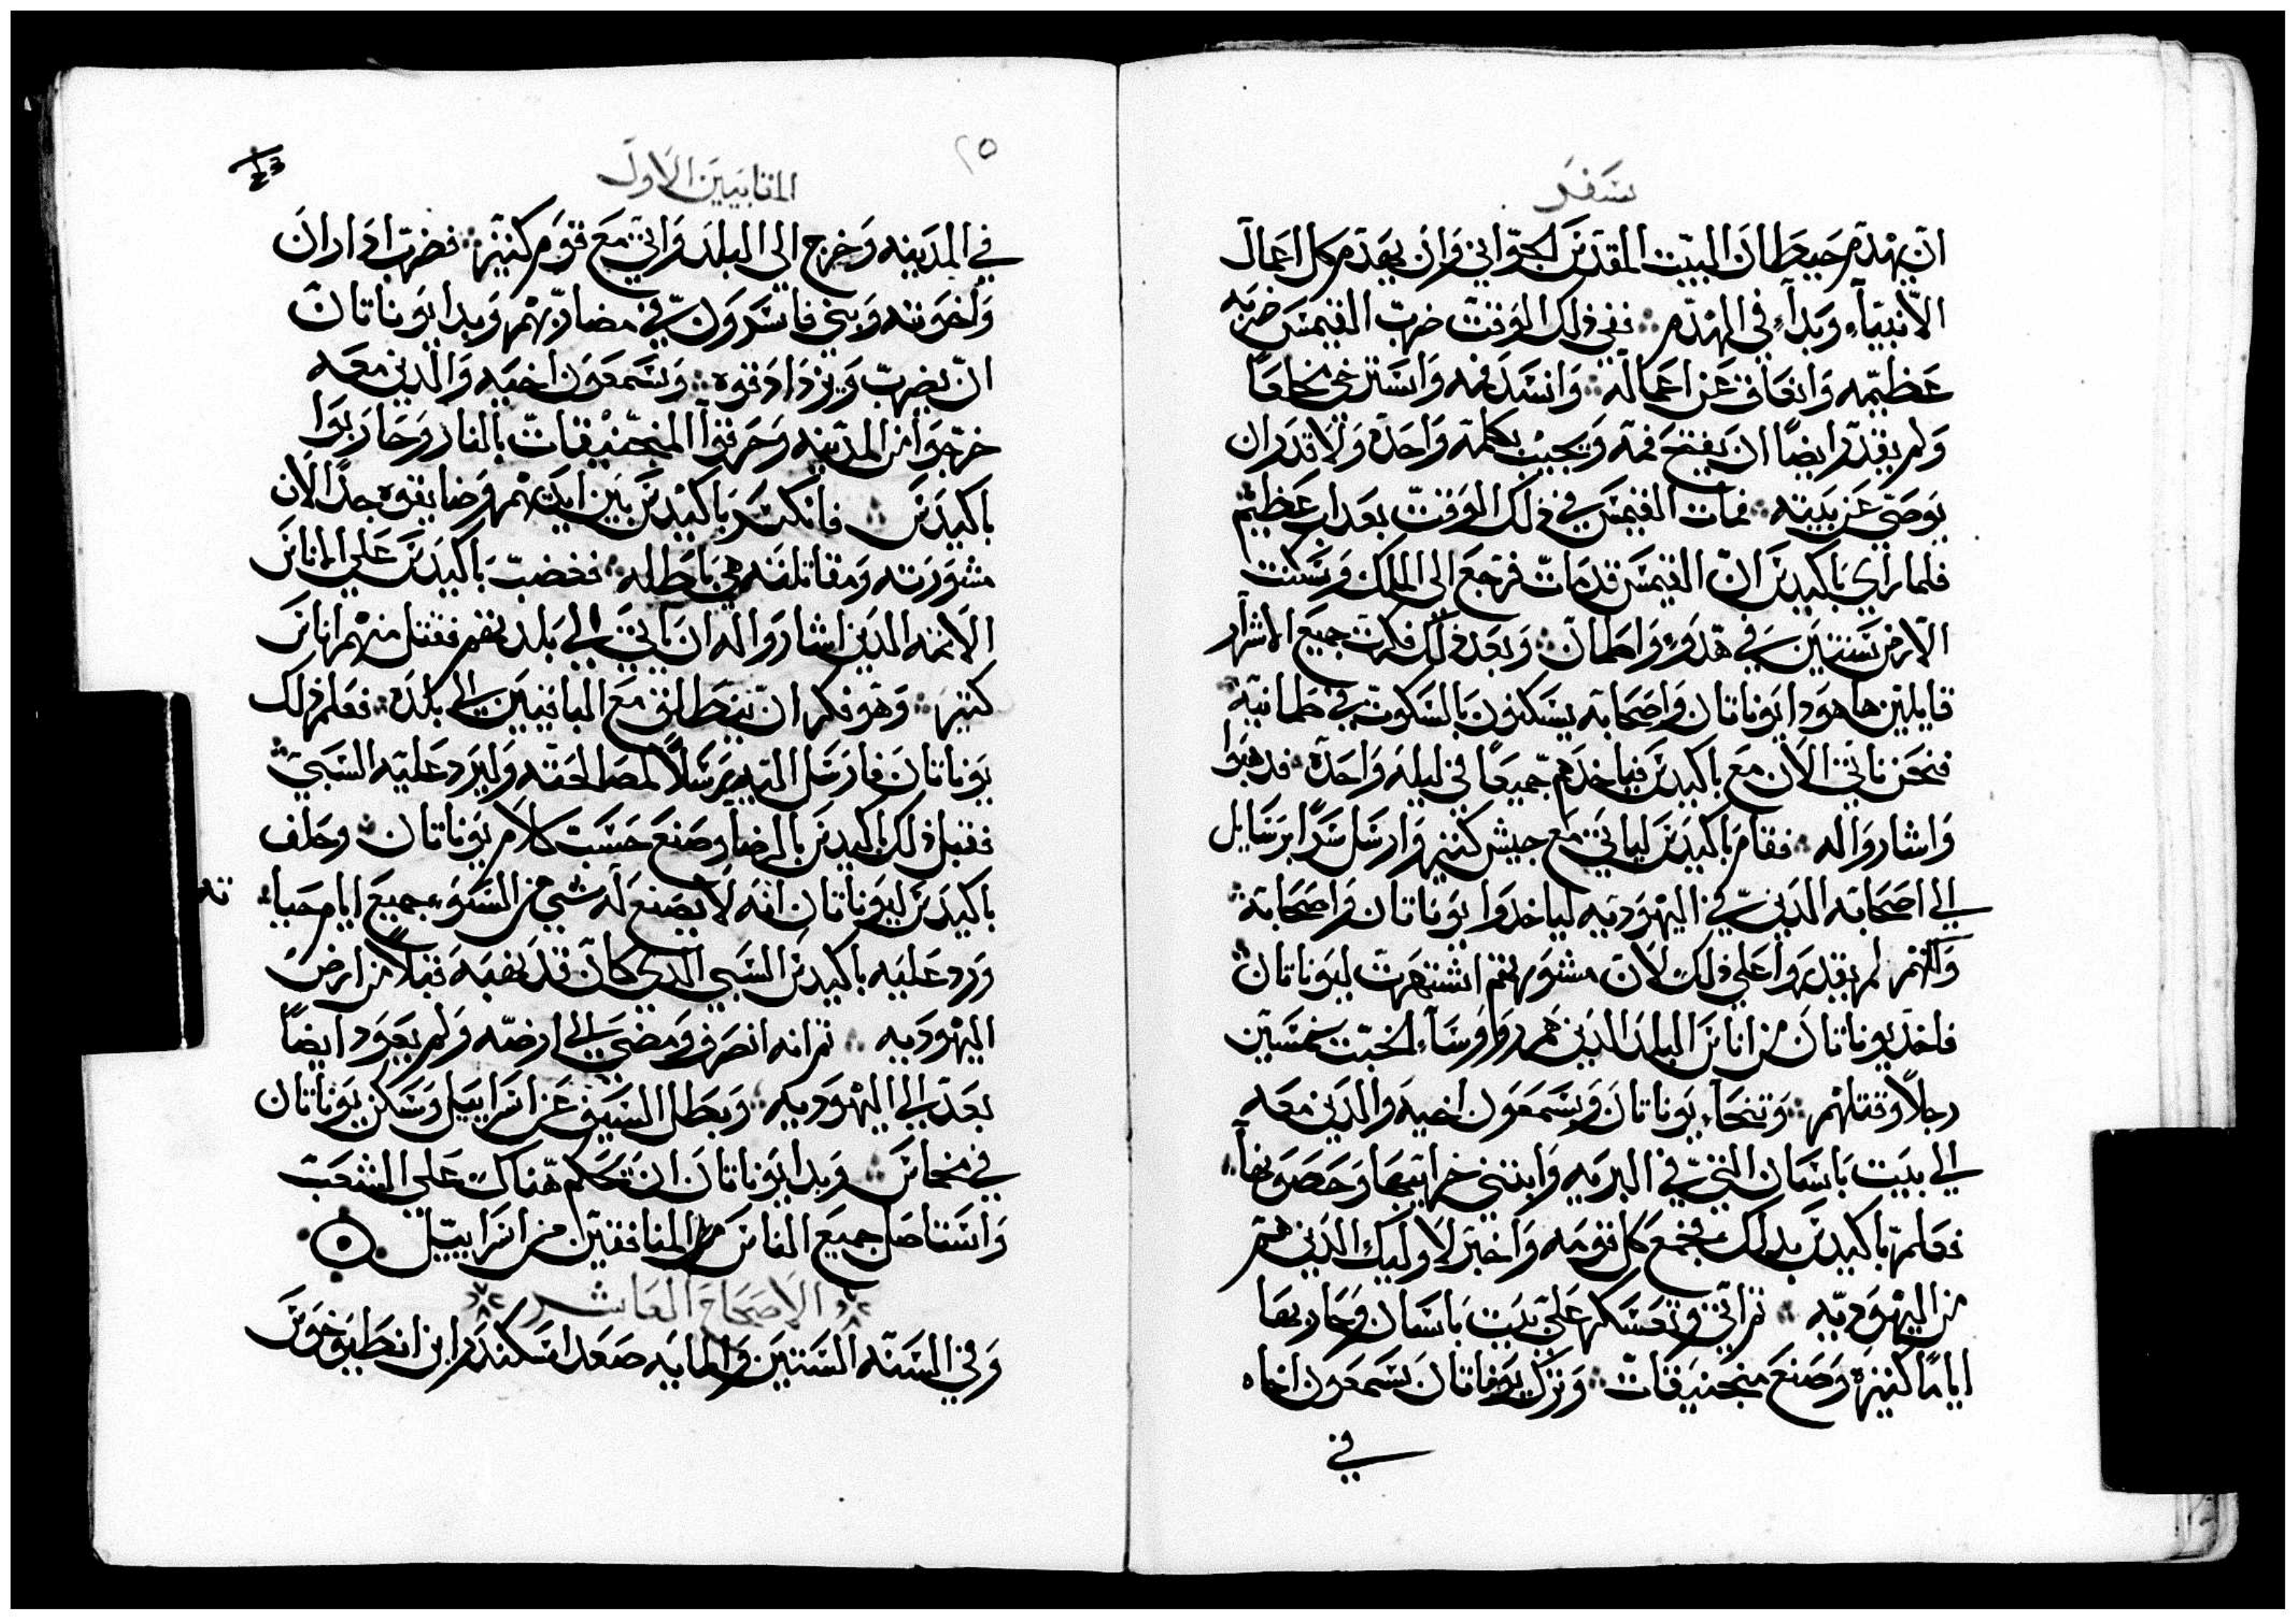 سفر
ان يهدم حيطان البيت المقدس الجواني وان يهدم كل اعمال
الانبياء وبداء في الهدم ❖ ففي ذلك الوقت ضرب القيمس ضربه
عظيمه وانعاق عن اعماله ❖ وانسد فمه واسترخي مخلعاً
ولم يقدر ايضاً ان يفتح فمه ويجيب بكلمة واحدة ولا قدر ان
يوصي عن بيته ❖ فمات القيمس في ذلك الوقت بعداب عظيم
فلما راي باكيدس ان القيمس قد مات فرجع الي الملك وسكنت
الارض سنتين في هدوء واطمان ❖ وبعد ذلك فكرت جميع الاشرار
قايلين ها هودا يوناتان واصحابه يسكنون بالسكوت في طمانية
فنحن ناتي الان مع باكيدس فياخدهم جميعاً في ليله واحدة ❖ فدهبوا
واشاروا له ❖ فقام باكيدس لياتي مع جيش كثير وارسل سراً برسايل
الي اصحابه الدين في اليهودية لياخدوا يوناتان واصحابة ❖
ولكنهم لم يقدروا علي ذلك لان مشورتهم اشتهرت ليوناتان ❖
فاخد يوناتان من اناس البلد الدين هم روساء الخبث خمسين
رجلاً وقتلهم ❖ وتنحاء يوناتان وسمعون اخيه والدين معه
الي بيت باسان التي في البريه وابتني خرايبها وحصونها ❖
فعلم باكيدس بدلك فجمع كل قومه واخبر لاوليك الدين هم
من اليهوديه ❖ ثم اتي وتعسكر علي بيت باسان وحاربها
اياماً كثيرة وصنع منجنيقات ❖ وترك يوناتان سمعون اخاه
في
٢٥
المقابيين الاول
في المدينه وخرج الي البلد واتي مع قوم كثير ❖ فضرب اداران
واخوته وبني فاسرون في مضاربهم وبدا يوناتان
ان يضرب ويزداد قوه ❖ وسمعون اخيه والدين معه
خرجوا من المدينه وحرقوا المنجنيقات بالنار وحاربوا
باكيدس ❖ فانكسر باكيدس بين ايديهم وضايقوه جداً لان
مشورته ومقاتلته هي باطله ❖ فغضب باكيدس علي الاناس
الاثمه الدين اشاروا له ان ياتي الي بلدتهم فقتل منهم اناس
كثير ❖ وهو فكر ان ينطلق مع الباقيين الي بلده ❖ فعلم ذلك
يوناتان فارسل اليه رسلاً لمصالحته وليرد عليه السبي ❖
فقبل ذلك باكيدس بالرضا وصنع حسب كلام يوناتان ❖ وحلف
باكيدس ليوناتان انه لا يصنع له شي من السوء جميع ايام حيا
ته
ورد عليه باكيدس السبي الدي كان قد نهبه قبلاً من ارض
اليهوديه ❖ ثم انه انصرف ومضي الي ارضه ولم يعود ايضاً
بعد الي اليهوديه ❖ وبطل السيف عن اسراييل وسكن يوناتان
في مخماس ❖ وبدا يوناتان ان يحكم هناك علي الشعب
واستاصل جميع الناس المنافقين من اسراييل
الاصحاح العاشر
وفي السنه الستين والمايه صعد اسكندر ابن انطيوخوس